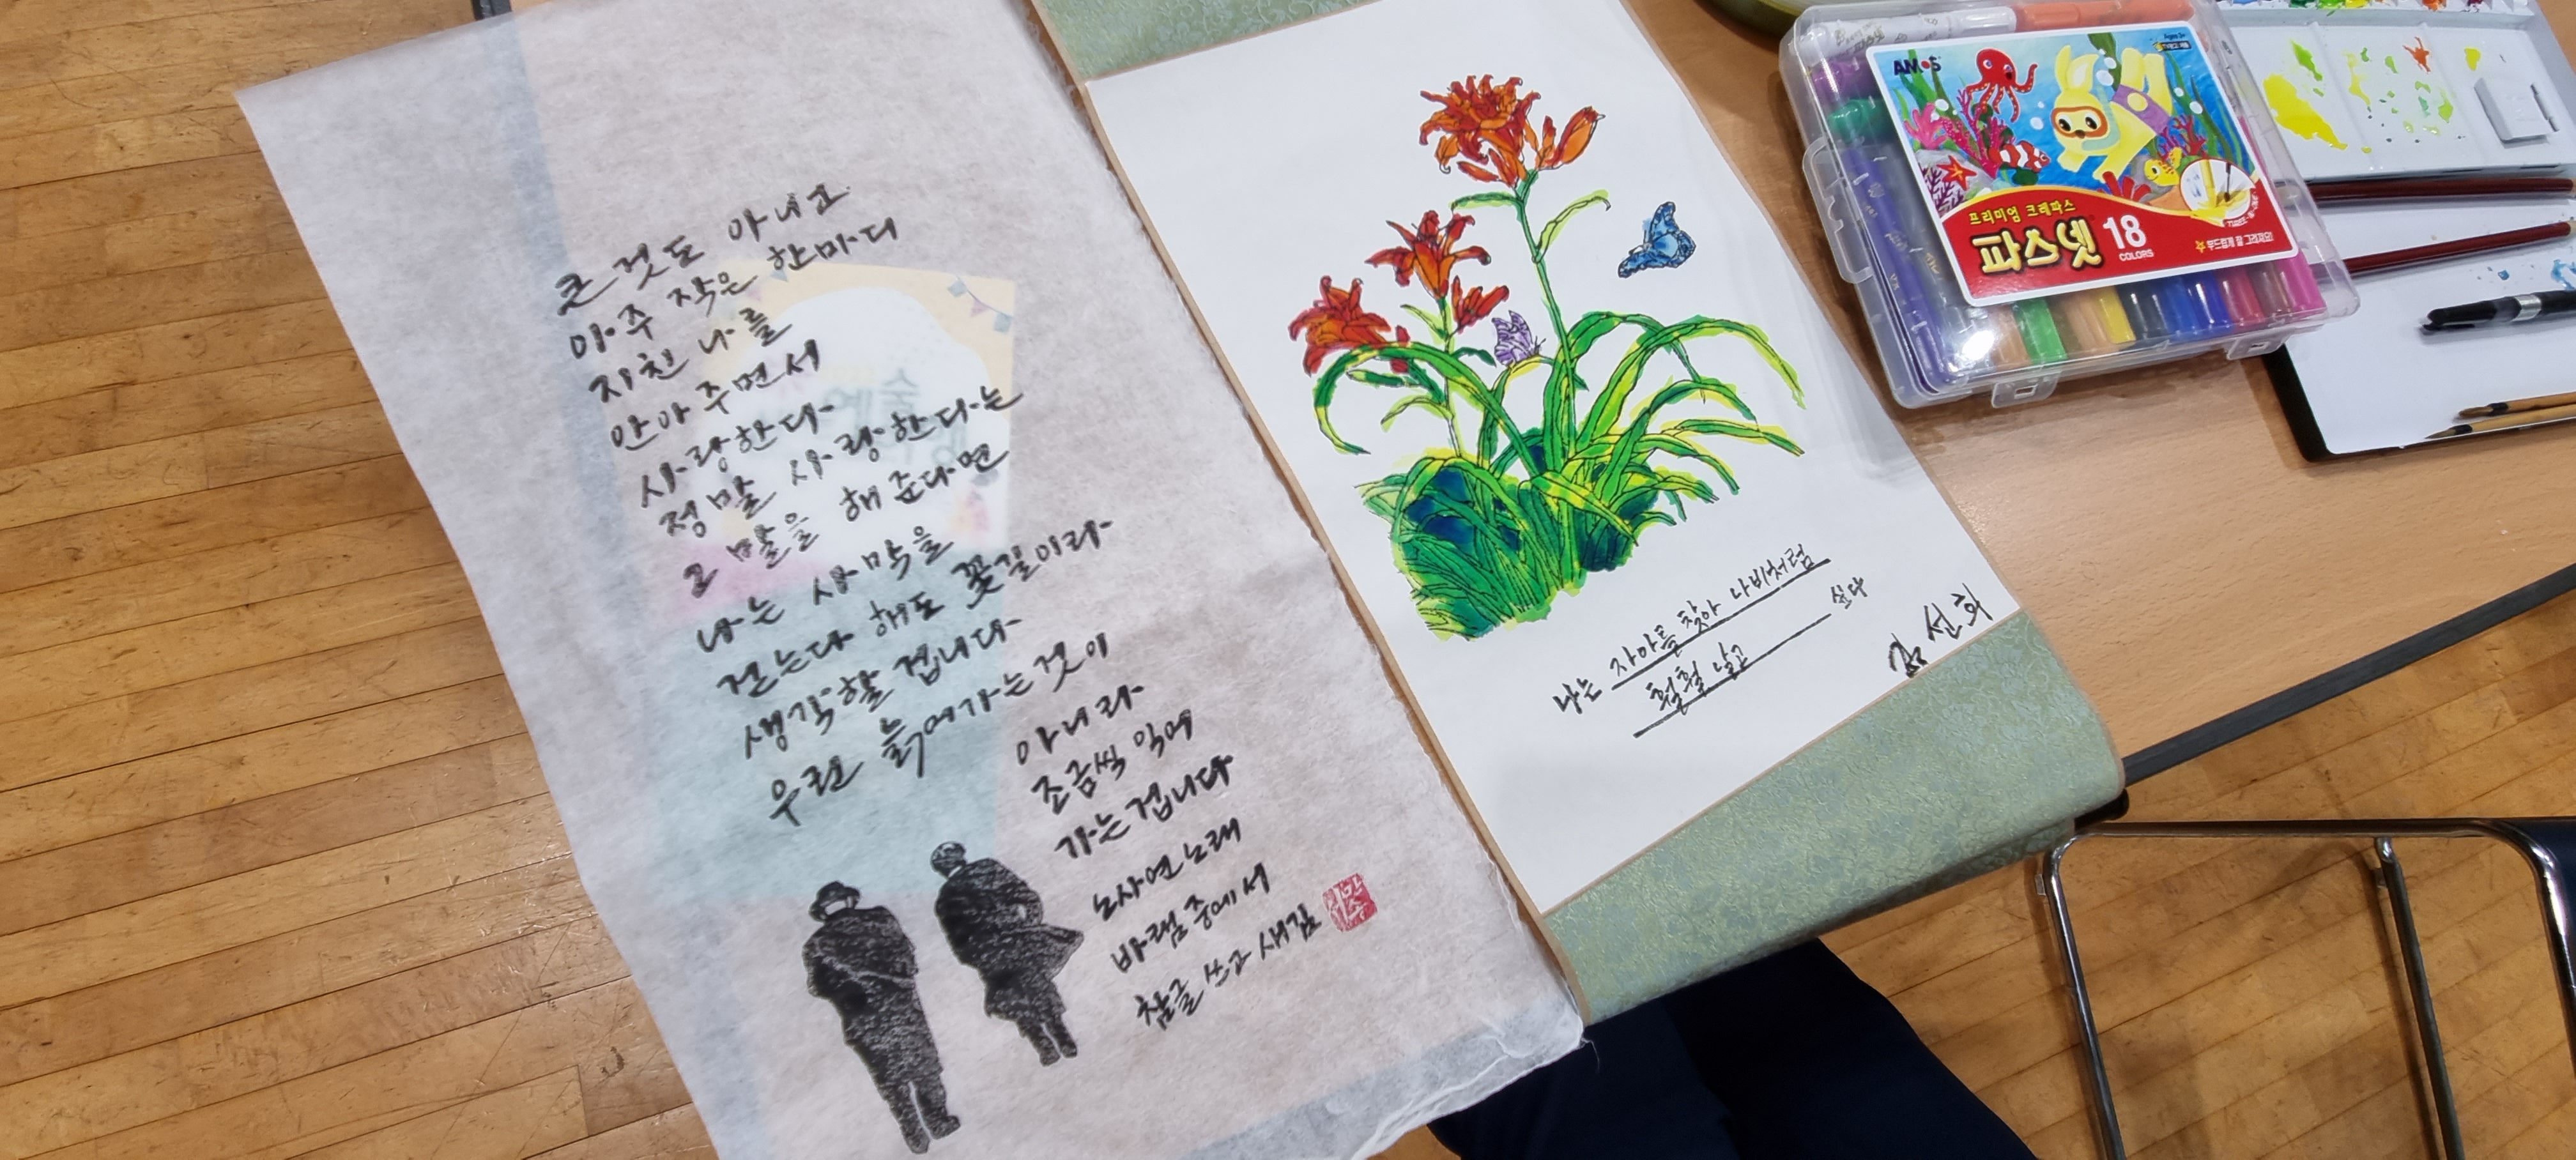 큰 것도 아니고
아주 작은 한마디
지친 나를
안아 주면서
사랑한다
정말 사랑한다는
그 말을 해 준다면
나는 사막을
걷는다 해도 꽃길이라
생각할 겁니다
우린 늙어가는 것이
아니라
조금씩 익어
가는 겁니다
노사연 노래
바램 중에서
참글 쓰고 새김
나는 자아를 찾아 나비처럼
훨훨 날고 싶다
김선희
AMOS
프리미엄 크레파스
파스넷 18
COLORS
부드럽게 잘 그려져요!